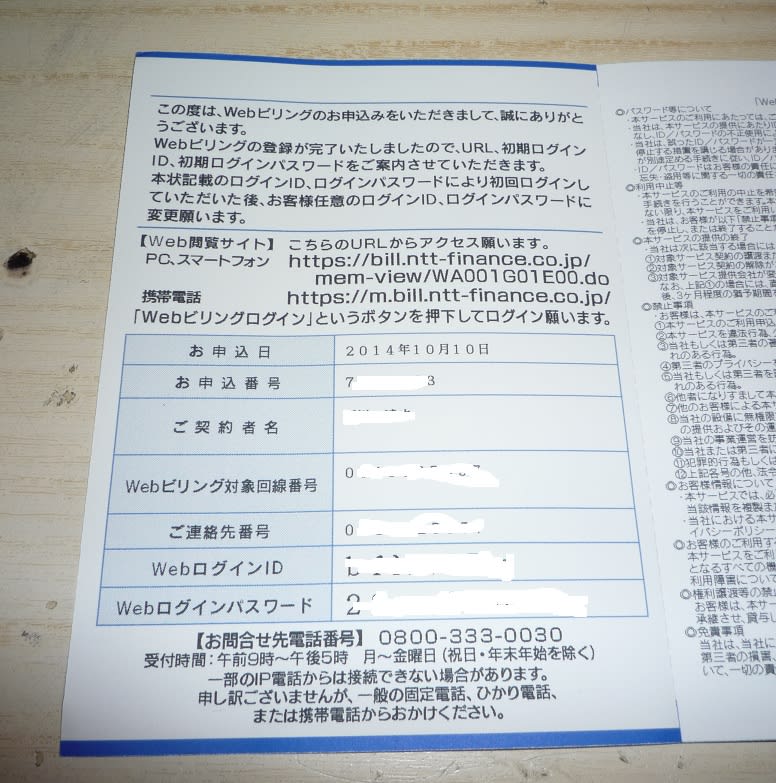 この度は、Webビリングのお申込みをいただきまして、誠にありがと
うございます。
Webビリングの登録が完了いたしましたので、URL、初期ログイン
ID、初期ログインパスワードをご案内させていただきます。
本状記載のログインID、ログインパスワードにより初回ログインし
ていただいた後、お客様任意のログインID、ログインパスワードに
変更願います。
【Web閲覧サイト】 こちらのURLからアクセス願います。
PC、スマートフォン https://bill.ntt-finance.co.jp/
mem-view/WA001G01E00.do
携帯電話 https://m.bill.ntt-finance.co.jp/
「Webビリングログイン」というボタンを押下してログイン願います。
お申込日 2014年10月10日
お申込番号 7 3
ご契約者名
Webビリング対象回線番号 0
ご連絡先番号 0
WebログインID
Webログインパスワード 2
【お問合せ先電話番号】 0800-333-0030
受付時間:午前9時~午後5時 月~金曜日(祝日・年末年始を除く)
一部のIP電話からは接続できない場合があります。
申し訳ございませんが、一般の固定電話、ひかり電話、
または携帯電話からおかけください。
◎パスワード等について
・本サービスのご利用にあたっては、こ
・当社は、本サービスの提供にあたりI
なし、ID/パスワードの不正使用に
・当社は、誤ったID/パスワードが
停止する措置を講じる場合があり
が別途定める手続きに従い、ID/
・ID/パスワードはお客様の責任に
忘失・盗用等に関する一切の責任
◎利用中止等
・本サービスのご利用の中止を希
手続きを行うことができます。本
ない限り、本サービスをご利用い
・当社は、お客様が以下「禁止事
を停止し、または終了することが
◎本サービスの提供の終了
・当社は次に該当する場合には、
①対象サービス契約の譲渡また
②対象サービス契約の解除が
③対象サービス提供会社が営
なお、上記①の場合には、直
後、3ヶ月程度の猶予期間を
◎禁止事項
・お客様は、本サービスのご利
①本サービスのご利用申込
②本サービスを違法行為、
③当社もしくは第三者の著
れのある行為。
④第三者のプライバシー
⑤当社もしくは第三者を
れのある行為。
⑥他者になりすまして本
⑦他のお客様による本サ
⑧当社の設備に無権限
の提供およびその運
⑨当社の事業運営を妨
⑩当社または第三者に
⑪犯罪的行為もしくは
⑫上記各号の他、法令
◎お客様情報について
・本サービスでは、必
当該情報を複製ま
・当社における本サ
イバシーポリシー
◎お客様のご利用する
本サービスをご利
となるすべての機
利用障害について
◎権利譲渡等の禁止
お客様は、本サー
承継させ、貸与し
◎免責事項
当社は、当社に
第三者の損害、
いて、一切の責